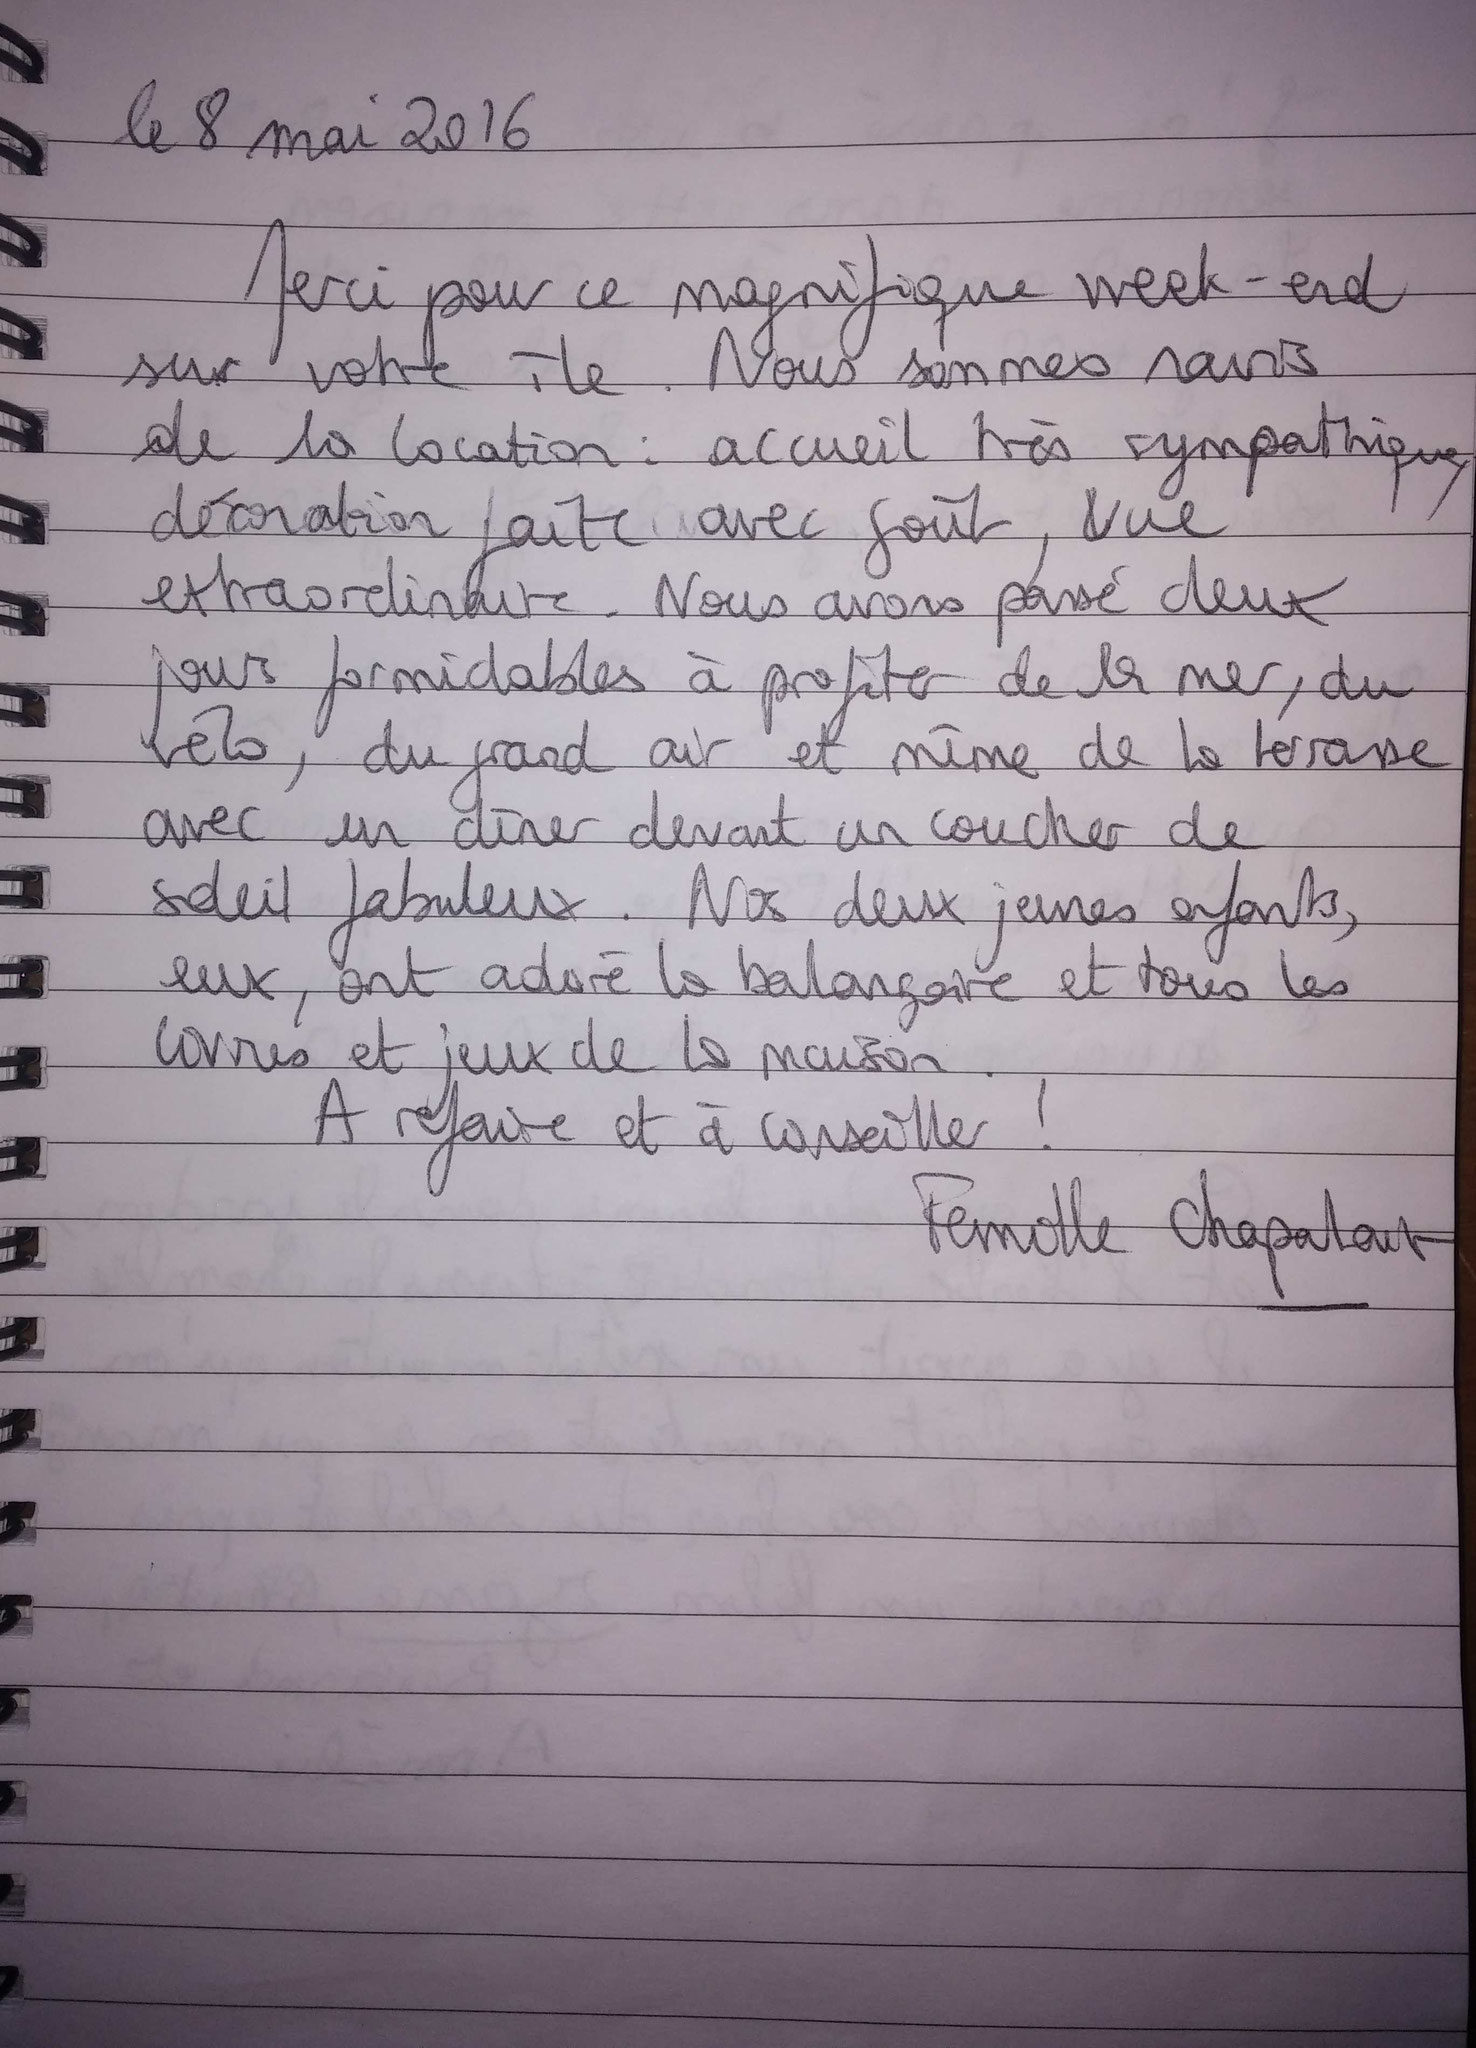 le 8 mai 2016
Merci pour ce magnifique week-end
sur votre île. Nous sommes ravis
de la location : accueil très sympathique,
décoration faite avec goût, vue
extraordinaire. Nous avons passé deux
jours formidables à profiter de la mer, du
vélo, du grand air et même de la terrasse
avec un dîner devant un coucher de
soleil fabuleux. Nos deux jeunes enfants,
eux, ont adoré la balançoire et tous les
livres et jeux de la maison.
A refaire et à conseiller !